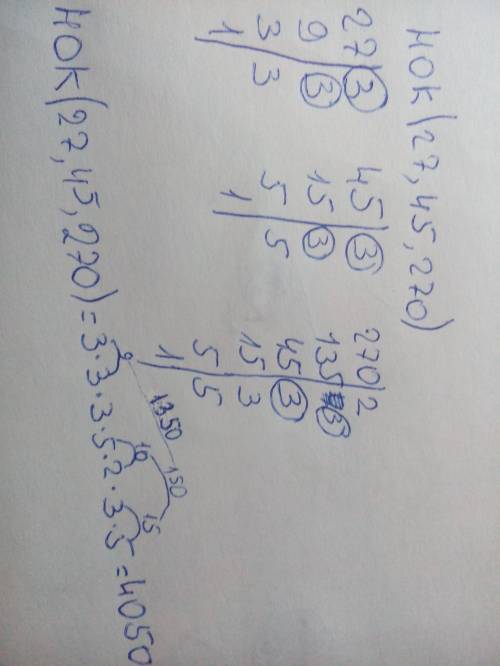 НОК(27, 45, 270)
27 3
9 3
3 3
1
45 3
15 3
5 5
1
270 2
135 3
45 3
15 3
5 5
1
1350
150
9 10 15
НОК(27, 45, 270) = 3·3·3·5·2·3·5 = 4050